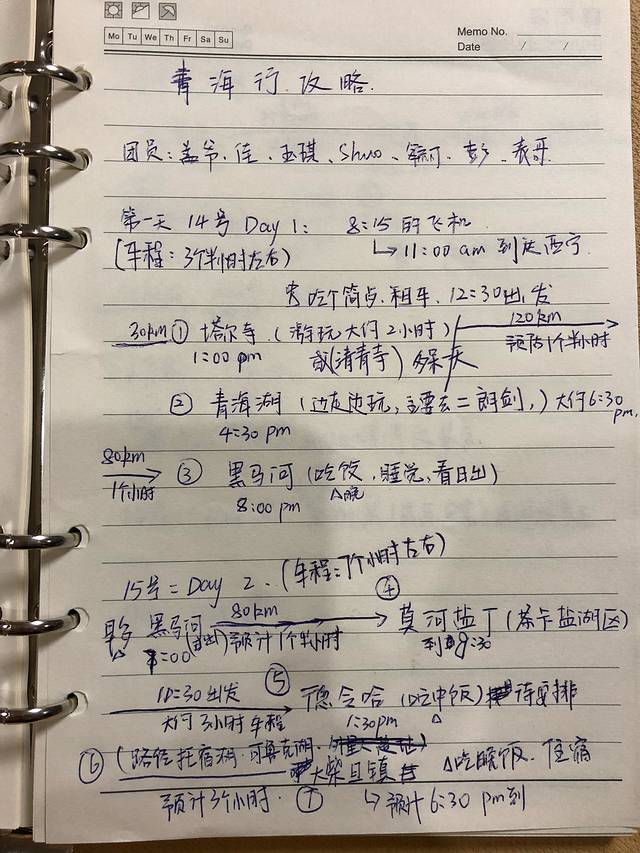 Mo Tu We Th Fr Sa Su
Memo No.
Date / /
青海行攻略.
团员: 盖爷、佳、玉琪、Shuo、彭、表哥.
第一天 14号 Day 1: 8:15 的飞机
(车程: 3个半小时左右) ↳ 11:00 am 到达西宁.
吃个简点. 租车. 12:30出发
30km ① 塔尔寺. (游玩大约2小时) 120km
1:00 pm 或(清青寺) 预估1个半小时
② 青海湖 (边走边玩, 主要去二郎剑,) 大约6:30 pm.
4:30 pm
80km
1个小时 ③ 黑马河 (吃饭, 睡觉, 看日出)
8:00 pm 晚
15号: Day 2. (车程: 7个小时左右)
④
黑马河 80km 莫河盐丁 (茶卡盐湖区)
7:00 (出) 预计1个半小时 到 9:30
10:30出发 ⑤ 德令哈 (吃中饭) 待安排
大约3小时车程 1:30pm
⑥ (路经托宿湖. 可鲁克湖. 大柴旦镇 吃晚饭. 住宿
预计3个小时. ⑦ ↳ 预计 6:30 pm到